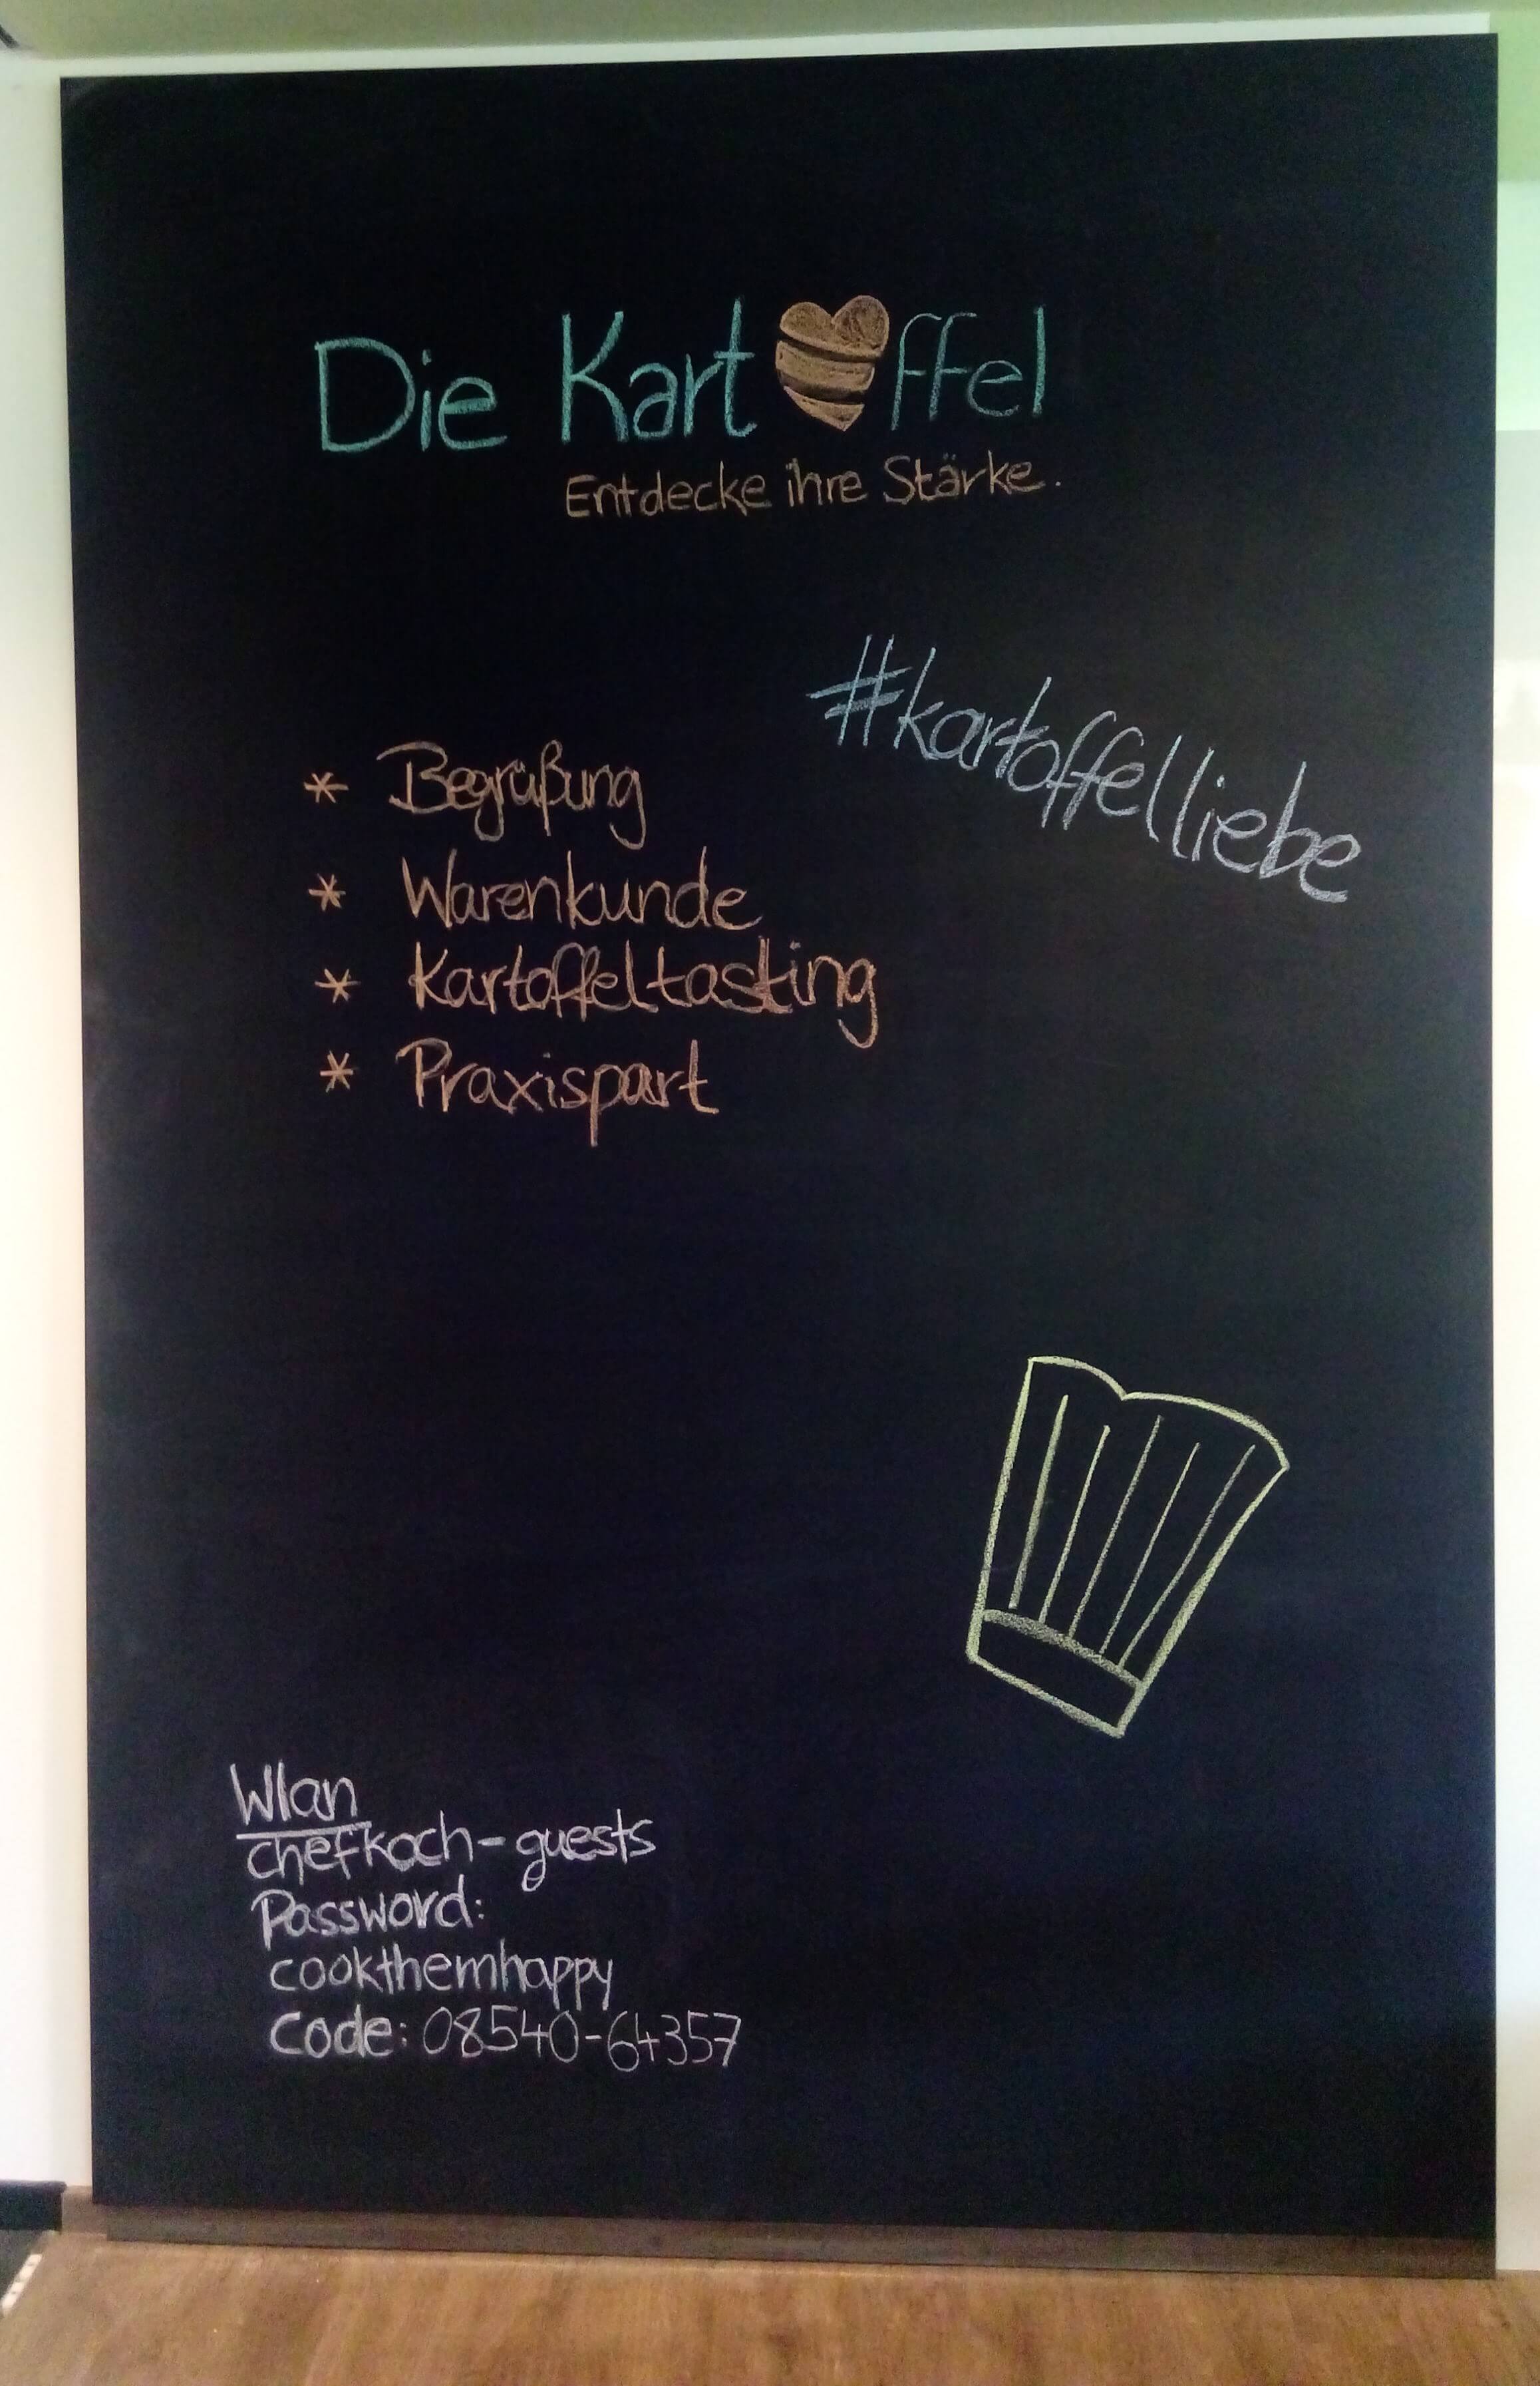 Die Kart ffel
Entdecke ihre Stärke.
#kartoffelliebe
* Begrüßung
* Warenkunde
* Kartoffeltasting
* Praxispart
Wlan
chefkoch-guests
Password:
cookthemhappy
Code: 08540-64357